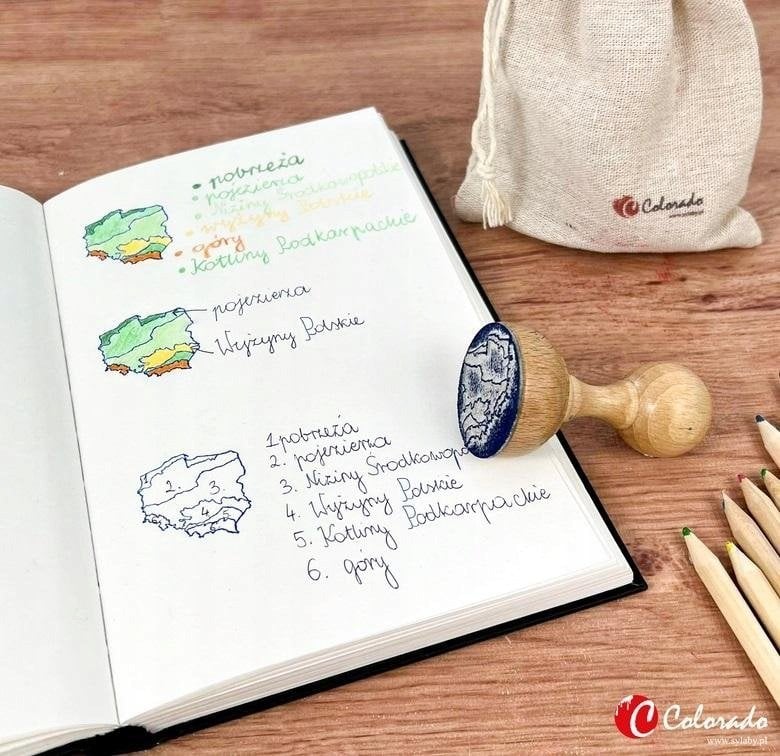 • pobrzeża
• pojezierza
• Niziny Środkowopolskie
• wyżyny Polskie
• góry
• Kotliny Podkarpackie
pojezierza
Wyżyny Polskie
1 pobrzeża
2. pojezierza
3. Niziny Środkowopo
4. Wyżyny Polskie
5. Kotliny Podkarpackie
6. góry
1. 3.
4. 5.
C Colorado
www.sylaby.pl
C Colorado
www.sylaby.pl